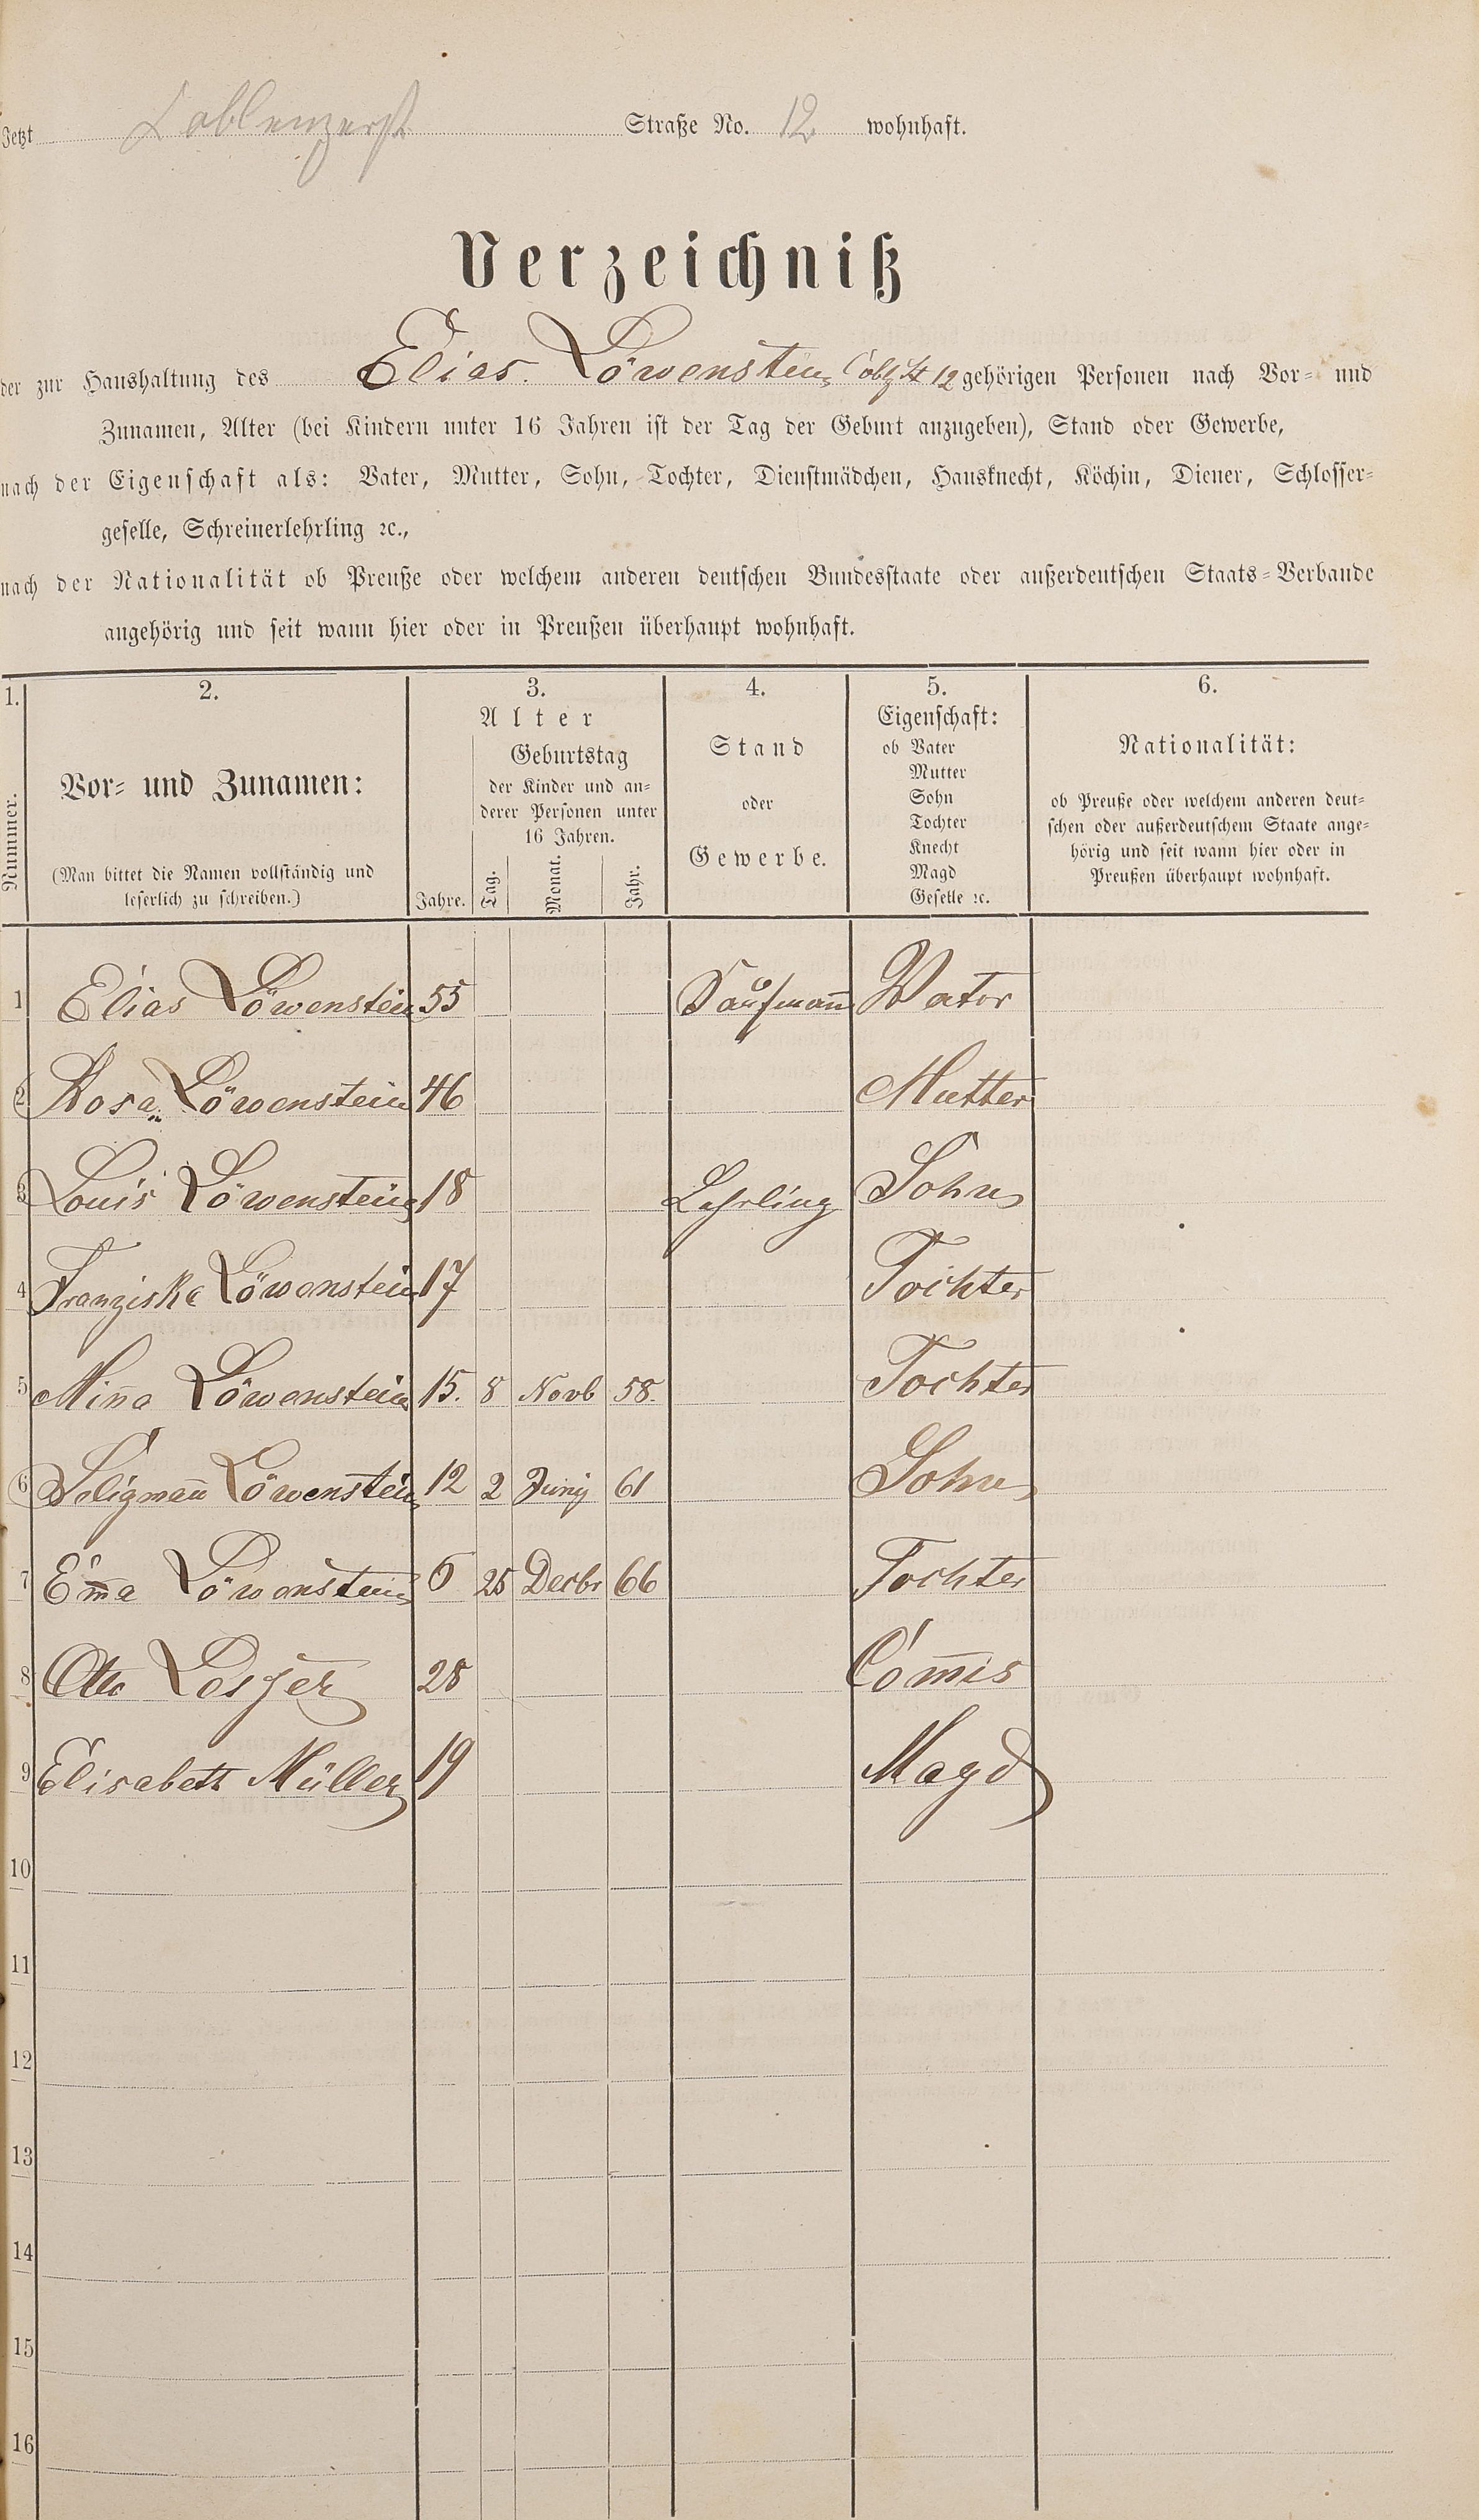 Jetzt Coblenzerst Straße No. 12 wohnhaft.
Verzeichniß
der zur Haushaltung des Elias Löwenstein Coblz St 12 gehörigen Personen nach Vor- und
Zunamen, Alter (bei Kindern unter 16 Jahren ist der Tag der Geburt anzugeben), Stand oder Gewerbe,
nach der Eigenschaft als: Vater, Mutter, Sohn, Tochter, Dienstmädchen, Hausknecht, Köchin, Diener, Schlosser-
geselle, Schreinerlehrling ꝛc.,
nach der Nationalität ob Preuße oder welchem anderen deutschen Bundesstaate oder außerdeutschen Staats-Verbande
angehörig und seit wann hier oder in Preußen überhaupt wohnhaft.
1. 2. 3. 4. 5. 6.
Nummer.
Vor- und Zunamen:
(Man bittet die Namen vollständig und
leserlich zu schreiben.)
Alter
Jahre.
Geburtstag
der Kinder und an-
derer Personen unter
16 Jahren.
Tag. Monat. Jahr.
Stand
oder
Gewerbe.
Eigenschaft:
ob Vater
Mutter
Sohn
Tochter
Knecht
Magd
Geselle ꝛc.
Nationalität:
ob Preuße oder welchem anderen deut-
schen oder außerdeutschem Staate ange-
hörig und seit wann hier oder in
Preußen überhaupt wohnhaft.
1 Elias Löwenstein 55 Kaufmañ Vater
2 Rosa Löwenstein 46 Mutter
3 Louis Löwenstein 18 Lehrling Sohn
4 Franziska Löwenstein 17 Tochter
5 Miña Löwenstein 15. 8 Novb 58.
Tochter
6 Seligmañ Löwenstein 12 2 Junij 61 Sohn
7 Em̄a Löwenstein 6 25 Decbr 66 Tochter
8 Otto 28 Com̄is
9 Elisabeth Müller 19 Magd
10
11
12
13
14
15
16